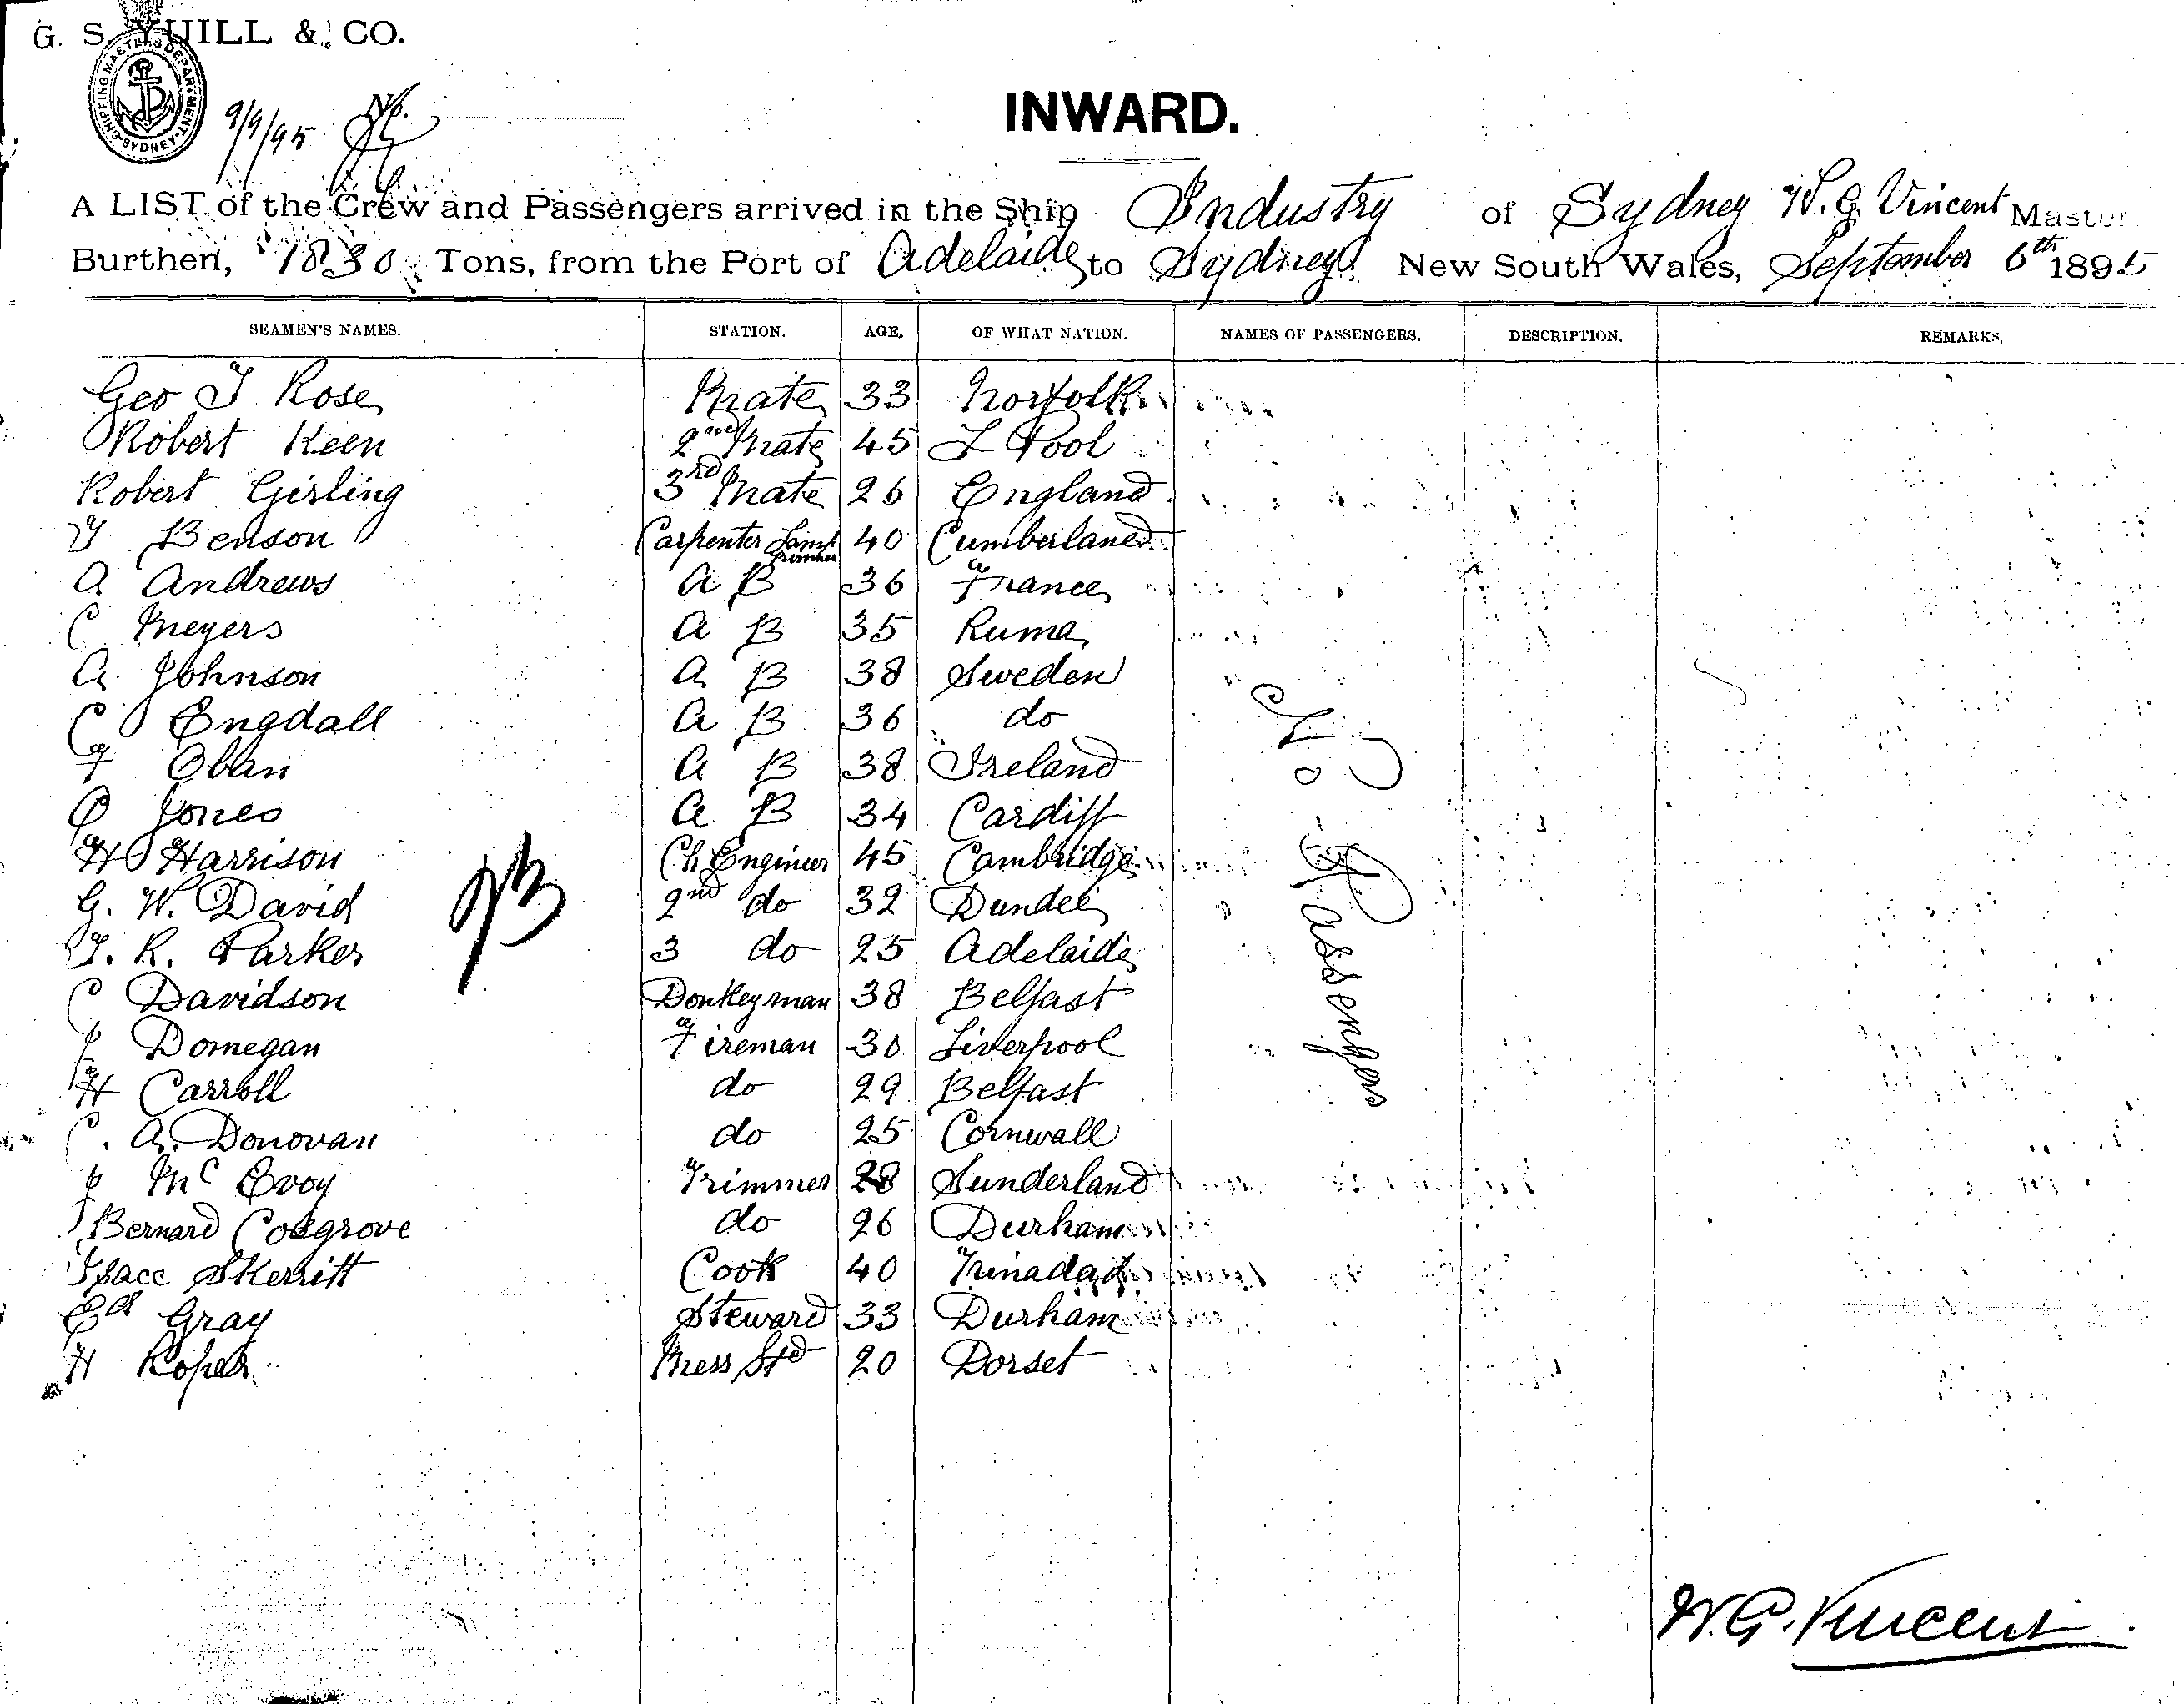 G. S. YUILL & CO.
SHIPPING MASTERS DEPARTMENT SYDNEY
9/9/95
INWARD.
A LIST of the Crew and Passengers arrived in the Ship Industry of Sydney W. G. Vincent Master
Burthen, 1830 Tons, from the Port of Adelaide to Sydney New South Wales, September 6th 1895
SEAMEN'S NAMES. STATION. AGE. OF WHAT NATION. NAMES OF PASSENGERS. DESCRIPTION. REMARKS.
Geo T Rose Mate 33 Norfolk
Robert Keen 2nd Mate 45 L Pool
Robert Girling 3rd Mate 26 England
T Benson Carpenter Lamp trimmer 40 Cumberland
A Andrews A B 36 France
C Meyers A B 35 Ruma
A Johnson A B 38 Sweden
C Engdall A B 36 do
F Oblin A B 38 Ireland
P Jones A B 34 Cardiff
H Harrison Ch Engineer 45 Cambridge
G. W. David 2nd do 32 Dundee
T. R. Parker 3 do 25 Adelaide
C Davidson Donkeyman 38 Belfast
J Domegan Fireman 30 Liverpool
H Carroll do 29 Belfast
C. A. Donovan do 25 Cornwall
J McEvoy Trimmer 28 Sunderland
Bernard Cosgrove do 26 Durham
Isacc Skerritt Cook 40 Trinadad
Ed Gray Steward 33 Durham
H Roper Mess Std 20 Dorset
No Passengers
W. G. Vincent